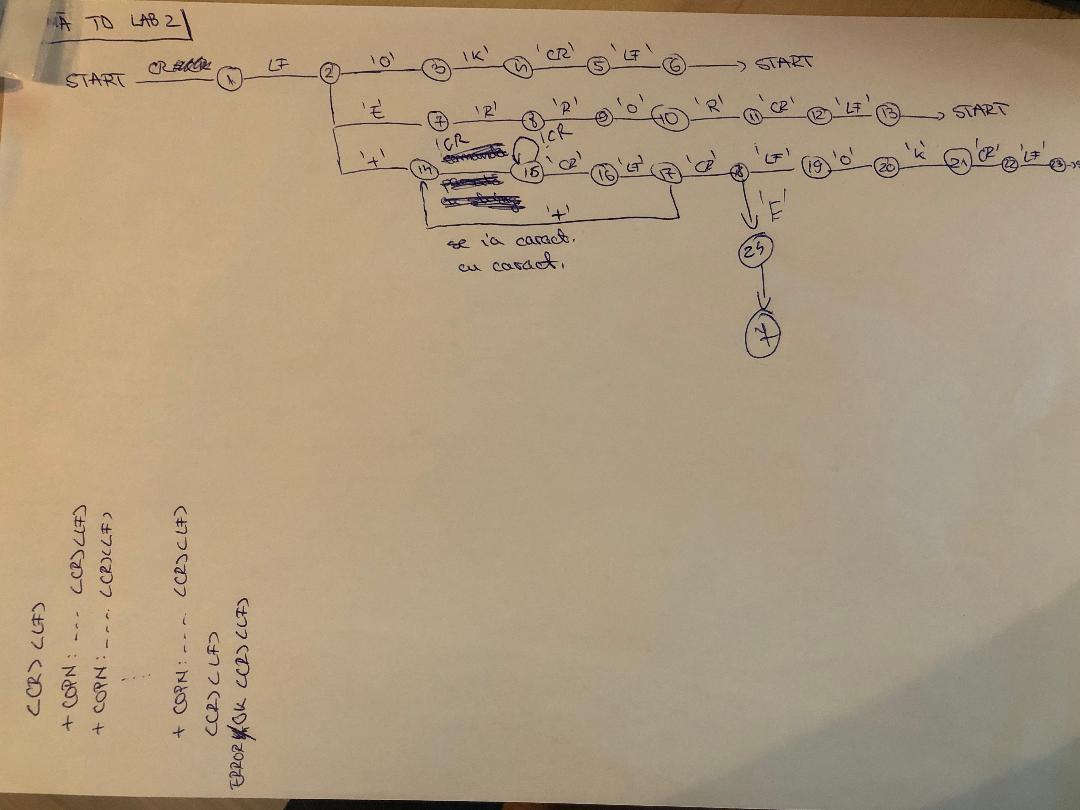 Ā TO LAB 2
START CR 1 LF 2 'O' 3 'K' 4 'CR' 5 'LF' 6 START
'E' 7 'R' 8 'R' 9 'O' 10 'R' 11 'CR' 12 'LF' 13 START
'+' 14 !CR 15 !CR 'CR' 16 'LF' 17 'CR' 18 'LF' 19 'O' 20 'K' 21 'CR' 22 'LF' 23
'+'
'E'
24
7
se ia caract.
cu caract.
<CR> <LF>
+ COPN: --- <CR> <LF>
+ COPN: ---- <CR> <LF>
⋮
+ COPN: ---- <CR> <LF>
<CR> <LF>
ERROR/OK <CR> <LF>